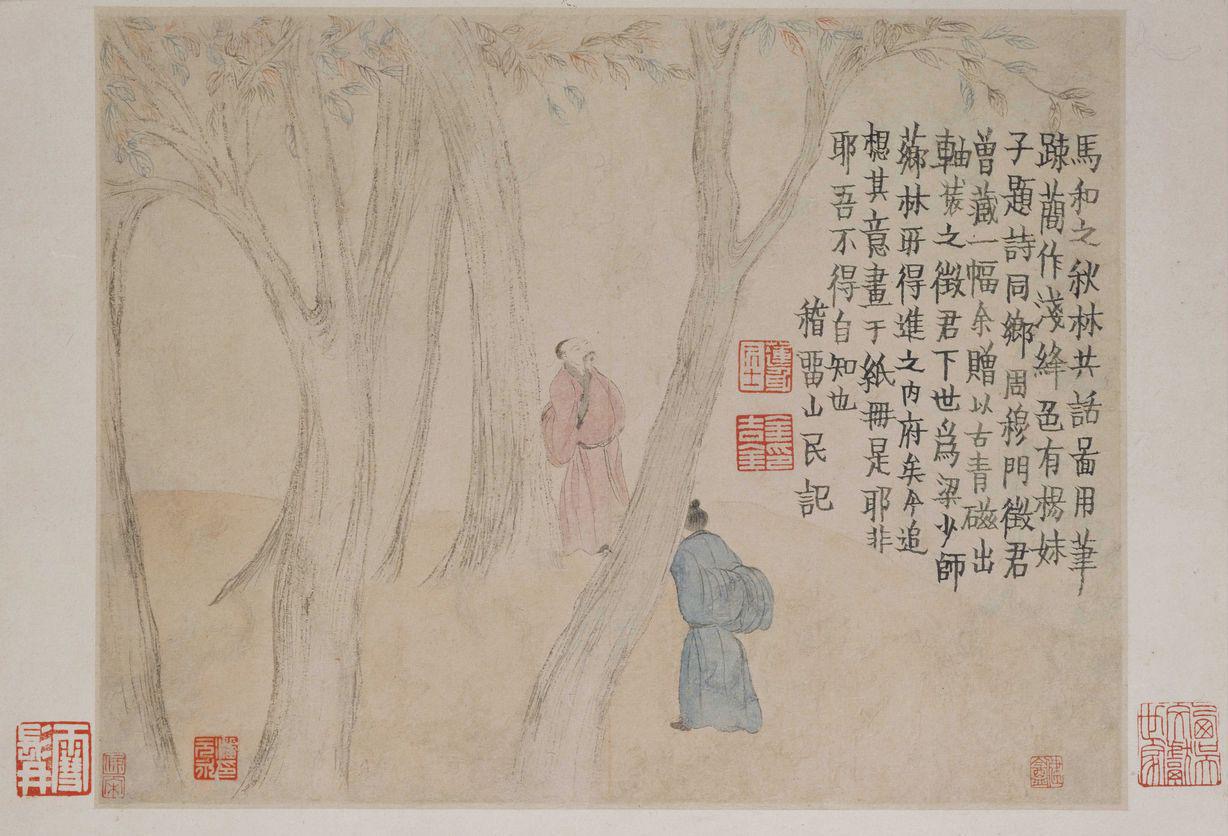 馬和之秋林共話啚用筆
踈蕳作淺絳色有楊妹
子題詩同鄉周穆門徵君
曾藏一幅余贈以古青磁出
軸裝之徵君下世爲梁少師
薌林所得進之內府矣今追
想其意畫于紙冊是耶非
耶吾不得自知也
稽畱山民記